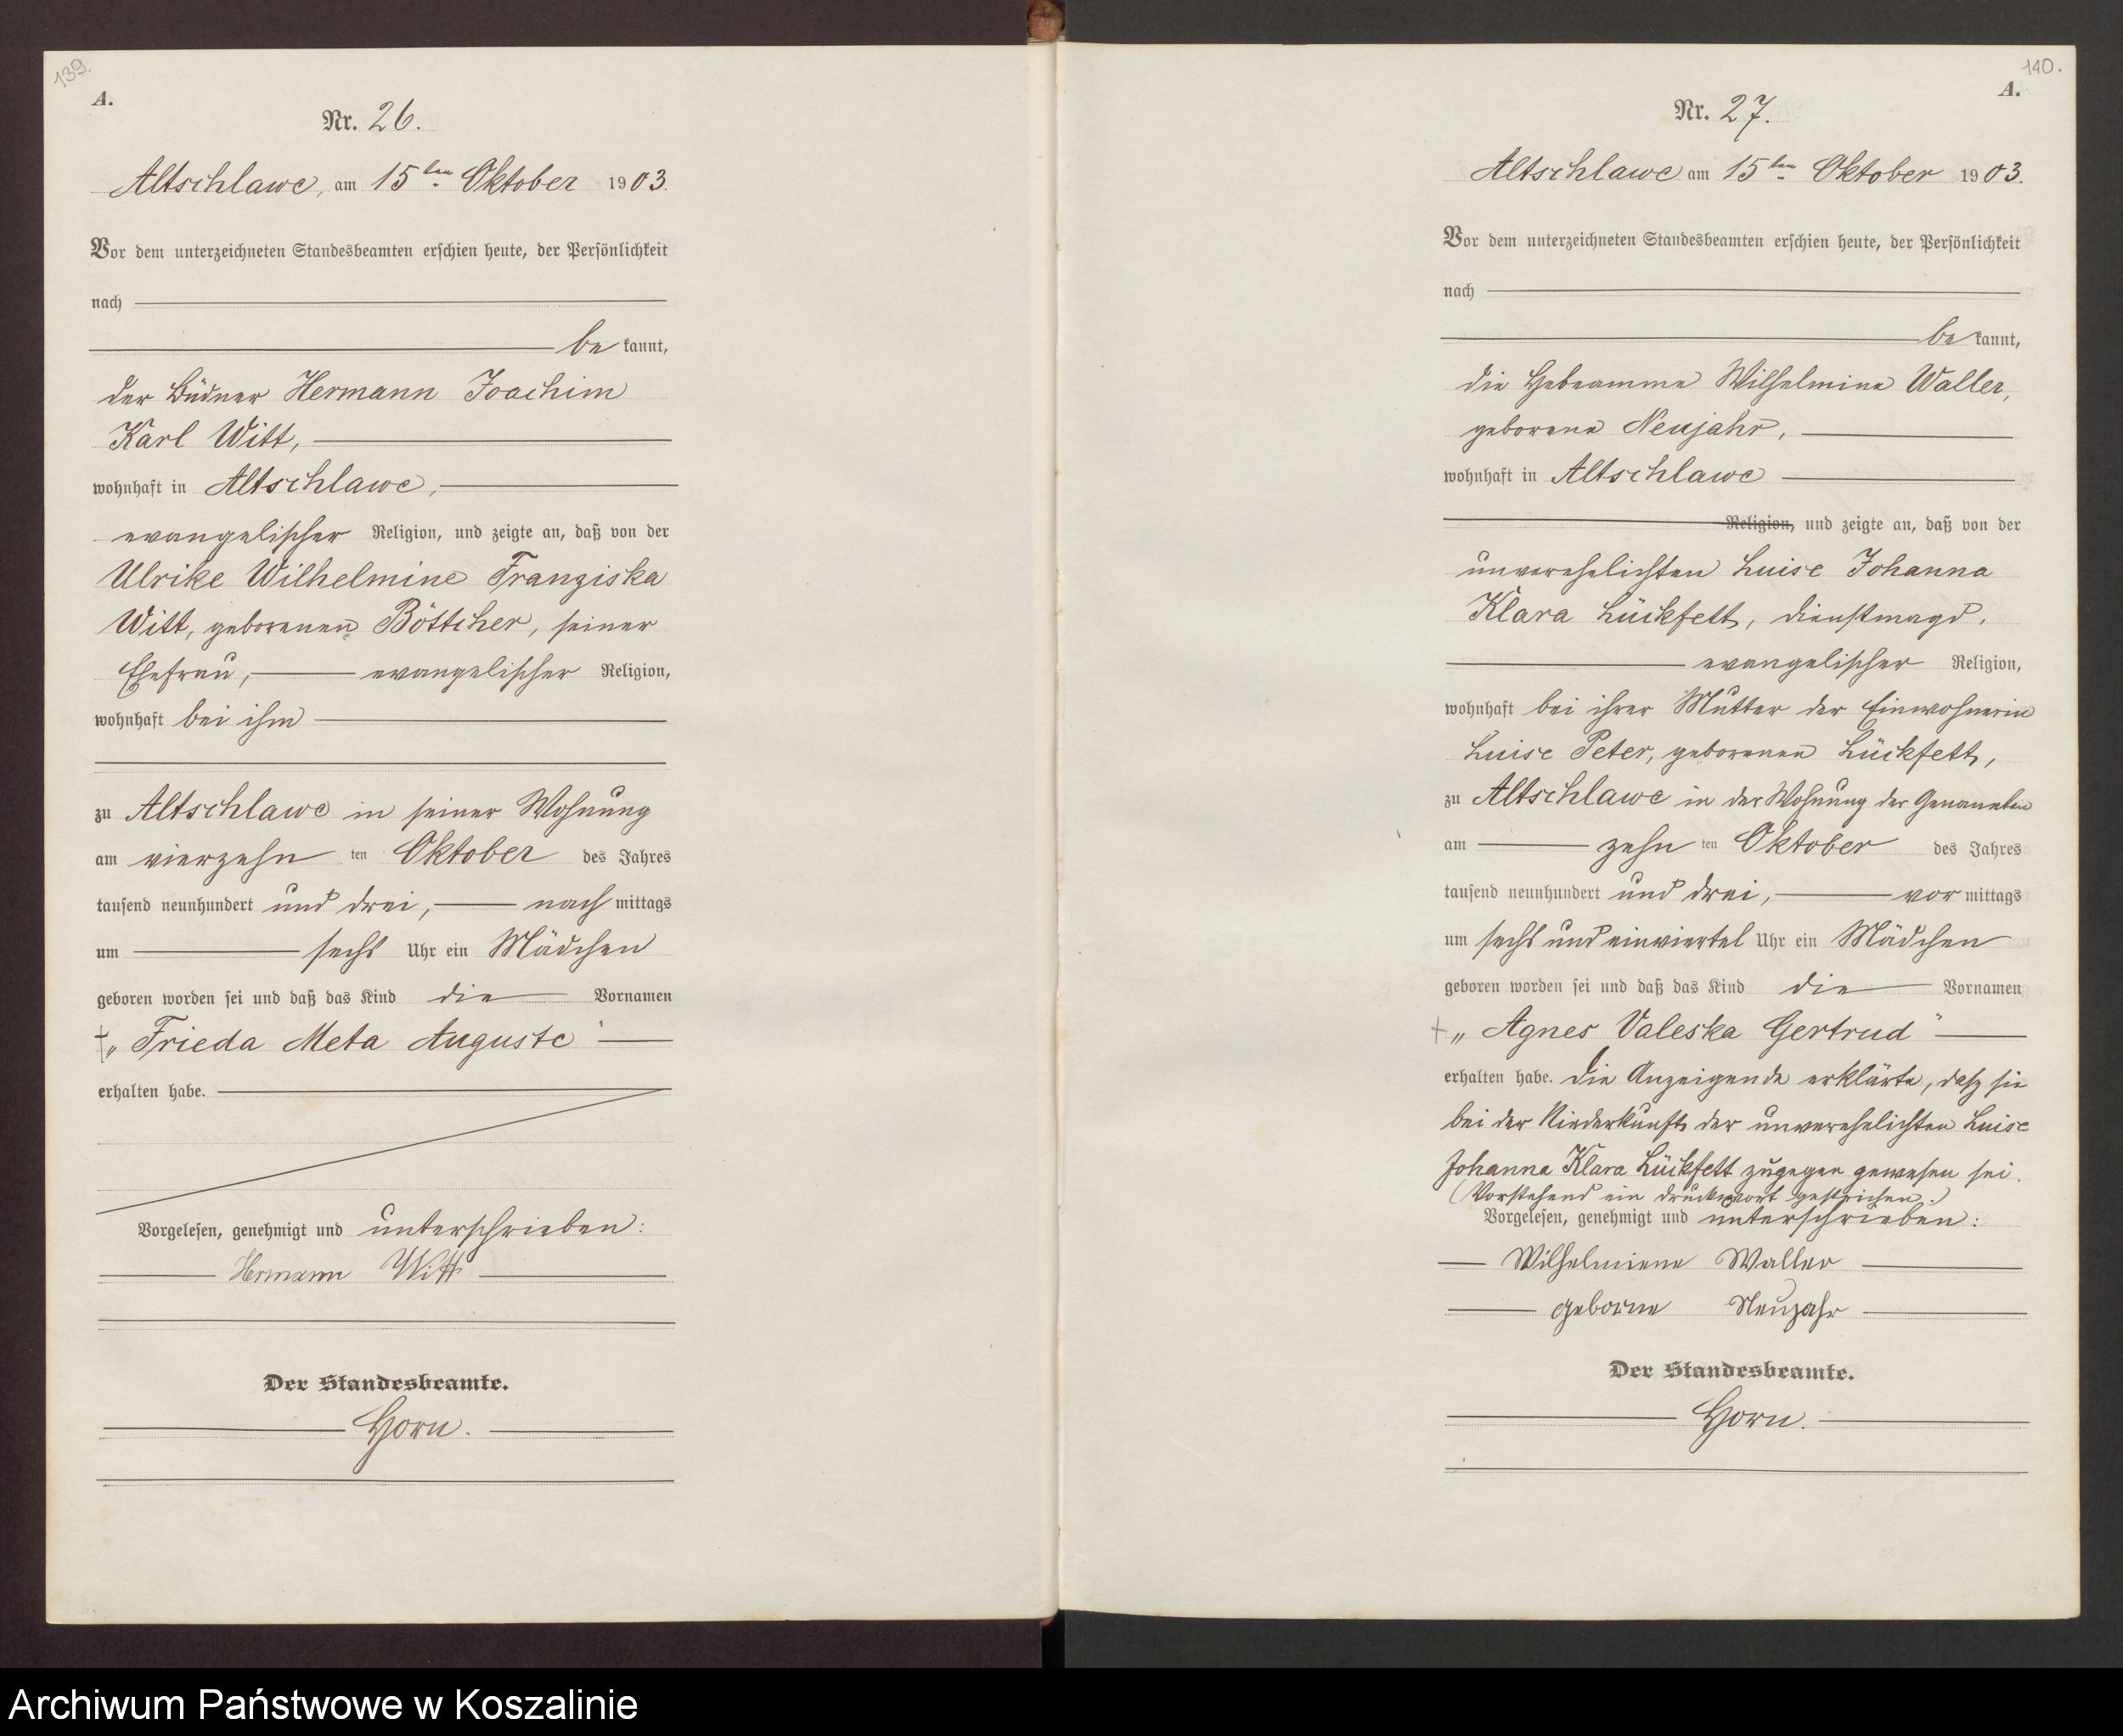 139.
A.
Nr. 26.
Altschlawe, am 15ten Oktober 1903.
Vor dem unterzeichneten Standesbeamten erschien heute, der Persönlichkeit
nach
be kannt,
der Büdner Hermann Joachim
Karl Witt,
wohnhaft in Altschlawe,
evangelischer Religion, und zeigte an, daß von der
Ulrike Wilhelmine Franziska
Witt, geborenen Böttcher, seiner
Ehefrau, evangelischer Religion,
wohnhaft bei ihm
zu Altschlawe in seiner Wohnung
am vierzehn ten Oktober des Jahres
tausend neunhundert und drei, nach mittags
um sechs Uhr ein Mädchen
geboren worden sei und daß das Kind die Vornamen
„Frieda Meta Auguste"
erhalten habe.
Vorgelesen, genehmigt und unterschrieben:
Hermann Witt
Der Standesbeamte.
Horn.
140.
A.
Nr. 27.
Altschlawe am 15ten Oktober 1903.
Vor dem unterzeichneten Standesbeamten erschien heute, der Persönlichkeit
nach
be kannt,
die Hebeamme Wilhelmine Waller,
geborene Neujahr,
wohnhaft in Altschlawe
Religion, und zeigte an, daß von der
unverehelichten Luise Johanna
Klara Lückfett, Dienstmagd,
evangelischer Religion,
wohnhaft bei ihrer Mutter der Einwohnerin
Luise Peter, geborenen Lückfett,
zu Altschlawe in der Wohnung der Genannten
am zehn ten Oktober des Jahres
tausend neunhundert und drei, vor mittags
um sechs und einviertel Uhr ein Mädchen
geboren worden sei und daß das Kind die Vornamen
„Agnes Valeska Gertrud"
erhalten habe. Die Anzeigende erklärte, daß sie
bei der Niederkunft der unverehelichten Luise
Johanna Klara Lückfett zugegen gewesen sei.
(Vorstehend ein Druckwort gestrichen.)
Vorgelesen, genehmigt und unterschrieben:
Wilhelmiene Waller
geborne Neujahr
Der Standesbeamte.
Horn.
Archiwum Państwowe w Koszalinie